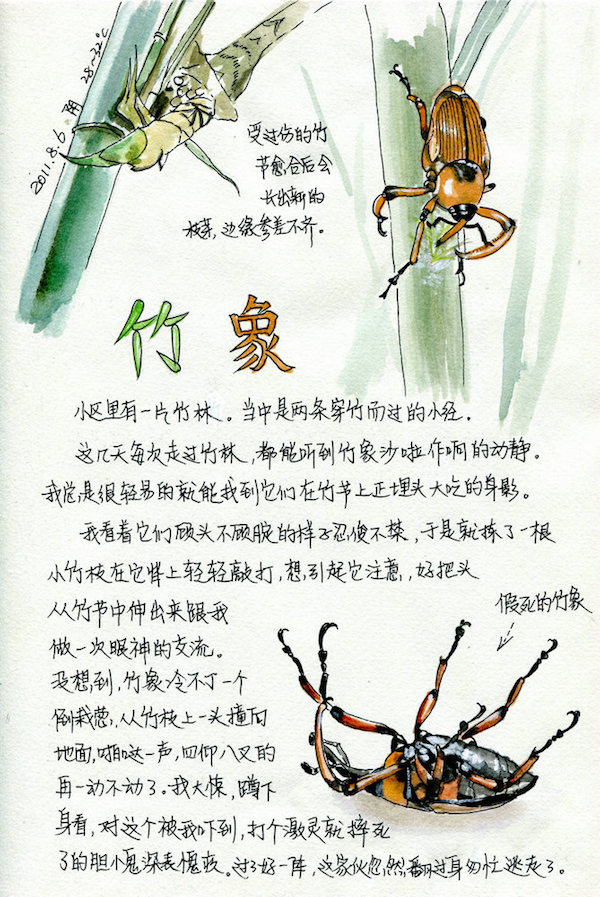 2011.8.6 阴 28~32°C
受过伤的竹
节愈合后会
长出新的
枝芽,边缘参差不齐。
竹 象
小区里有一片竹林。当中是两条穿竹而过的小径。
这几天每次走过竹林,都能听到竹象沙啦作响的动静。
我总是很轻易的就能找到它们在竹节上正埋头大吃的身影。
我看着它们顾头不顾腚的样子忍俊不禁,于是就拣了一根
小竹枝在它背上轻轻敲打,想引起它注意,好把头
从竹节中伸出来跟我
做一次眼神的交流。
没想到,竹象冷不丁一个
倒栽葱,从竹枝上一头撞向
地面,啪哒一声,四仰八叉的
再一动不动了。我大惊,蹲下
身看,对这个被我吓到,打个激灵就摔死
了的胆小鬼深表愧疚。过了好一阵,这家伙忽然翻过身匆忙逃走了。
假死的竹象